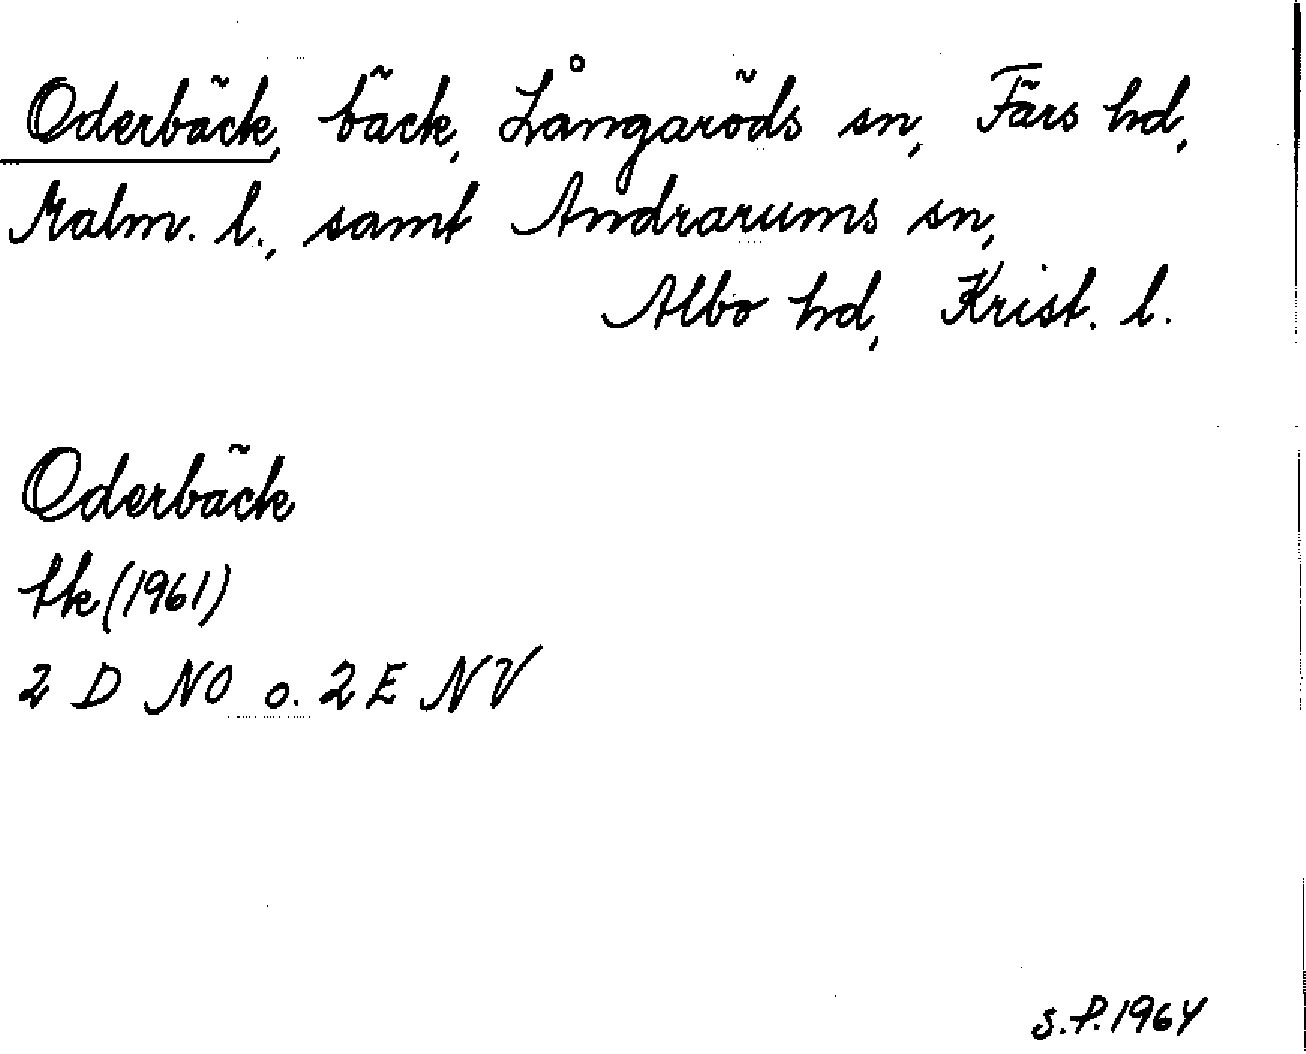 Oderbäck, bäck, Långaröds sn, Färs hd,
Malm. l., samt Andrarums sn,
Albo hd, Krist. l.
Oderbäck
tk (1961)
2 D NO o. 2 E NV
S.P. 1964